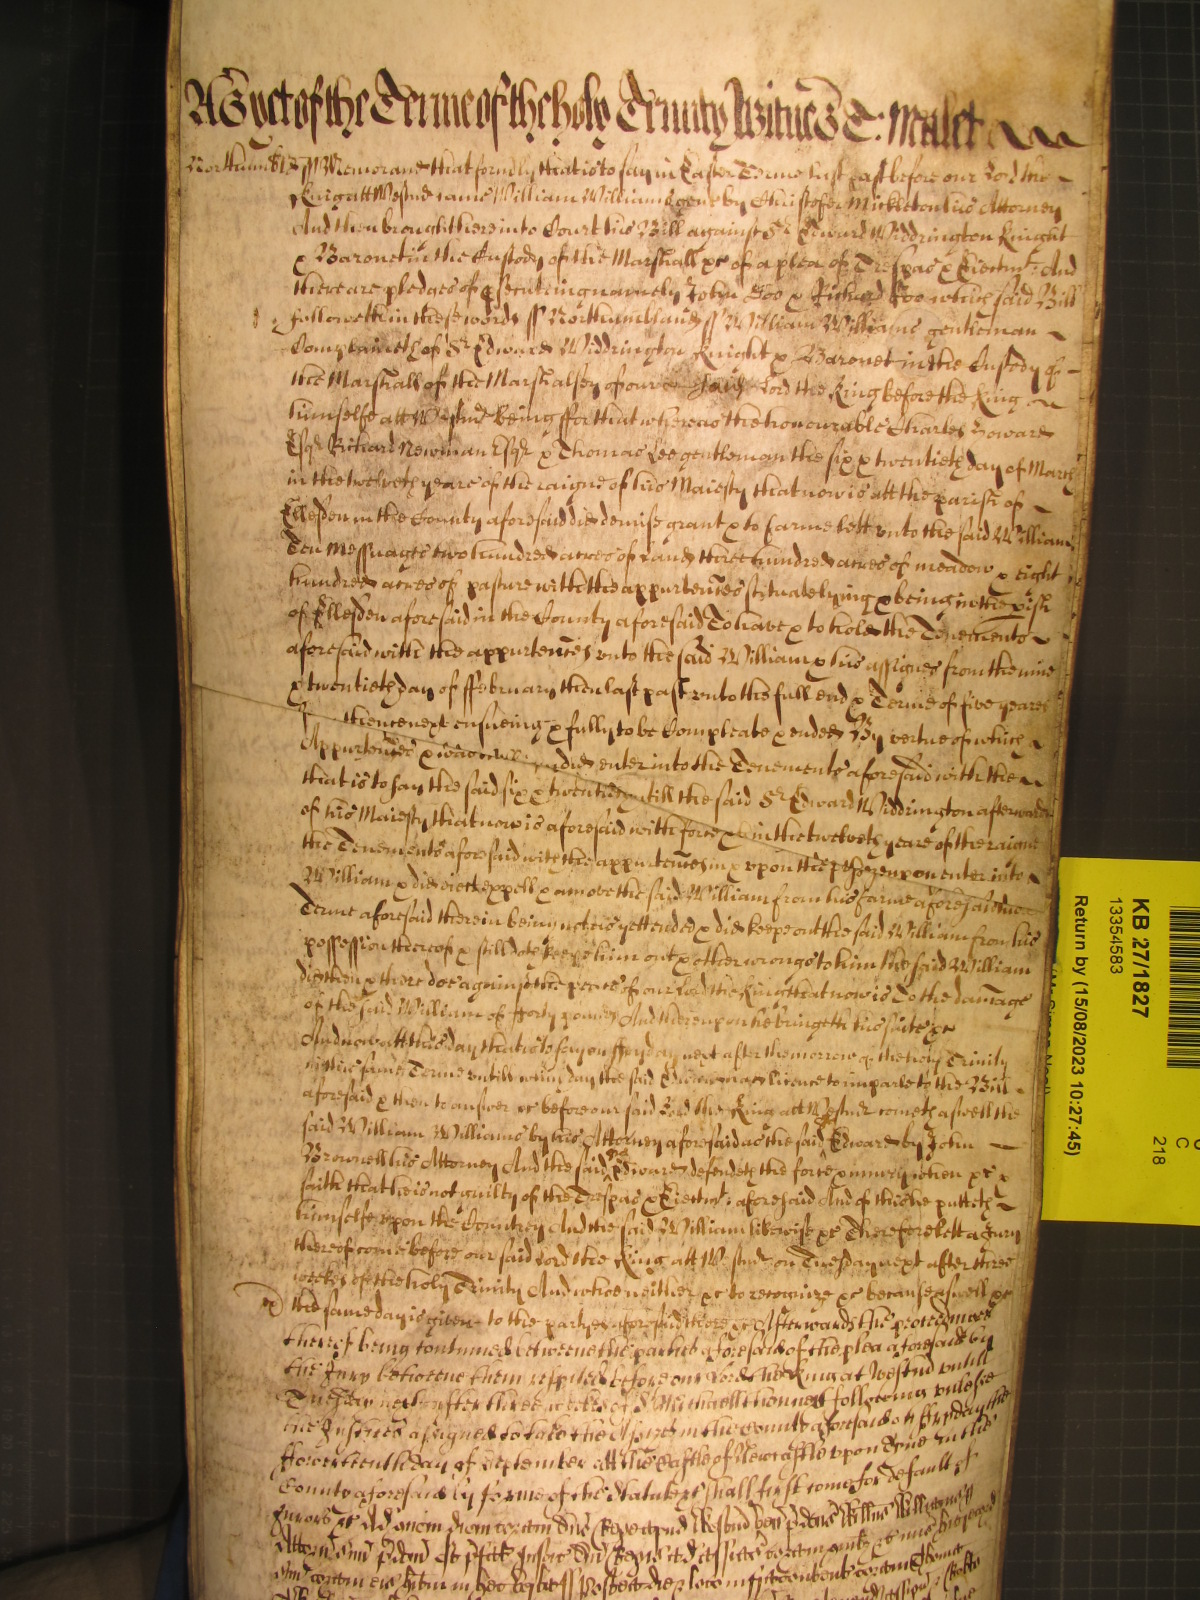 As yet of the Terme of the holy Trinity Witnes T: Malet
Northumbl ss Memorand that formerly that is to say in Easter Terme last past before our Lord the
King att Westmr came William Williams gent by Christofer Mickleton his Attorney
And then brought here into Court his Bill against Sr Edward Widdrington Knight
& Baronet in the Custody of the Marshall &c of a plea of Trespas & Eiectmt: And
there are pledges of psecuting namely John Doo & Richard Roo which said Bill
followeth in these words ss Northumbland ss William Williams gentleman
Complaineth of Sr Edward Widdrington Knight & Baronet in the Custody of
the Marshall of the Marshalsey of our said Lord the King before the King
himselfe att Westmr being ffor that whereas the honourable Charles Howard
Esqr Richard Newman Esqr & Thomas Lee gentleman the six & twentieth day of March
in the twelveth yeare of the raigne of his Maiesty that now is att the parish of
Ellesden in the County aforesaid did demise grant & to farme lett vnto the said William
Ten Messuages two hundred acres of Land three hundred acres of meadow & eight
hundred acres of pasture with the appurtences scituate lying & being in the pish
of Ellesden aforesaid in the County aforesaid To have & to hold the Tenements
aforesaid with the appurtences vnto the said William & his assignes from the nine
& twentieth day of ffebruary then last past vnto the full end & Terme of five yeares
thence next ensueing & fully to be Compleate & ended By vertue of which
did enter into the Tenements aforesaid with the
Appurtences & was
that is to say the said six & twentieth till the said Sr Edward Widdrington afterwards
in the twelveth yeare of the raigne
of his Maiesty that now is aforesaid with force &
the Tenements aforesaid with the appurtences in & vpon the enter into
William & did eiect expell & amove the said William from his farme aforesaid
Terme aforesaid therein being not as yett ended & did keepe out the said William from his
possession thereof & still doth keepe him out & other wrongs to him the said William
did then & there doe against the peace of our Lord the King that now is To the damage
of the said William of fforty pounds And thereupon he bringeth his suite &c
And now att this day that is to say on ffryday next after the morrow of the holy Trinity
in this same Terme vntill which day the said Edward had licence to imparle to the Bill
aforesaid & then to answer &c before our said Lord the King att Westmr cometh aswell the
said William Williams by his Attorney aforesaid as the said Edward by John
Brownell his Attorney And the said Edward defendeth the force & iniury when &c &
saith that he is not guilty of the Trespas & Eiectmt: aforesaid And of this he putteth
himselfe vpon the Countrey And the said William likewise &c Therefore lett a Jury
thereof come before our said Lord the King att Westmr on Tuesday next after three
weekes of the holy Trinity And who neither &c to recognize &c because aswell &c
the same day is given to the partyes aforesaid there &c Afterwards the processe
thereof being continued betweene the parties aforesaid of the plea aforesaid by
the Jury betweene them respited before our Lord the King at Westmr vntill
Tuesday next after three weekes of St Michaell thence following vnlesse
the Justices assigned to take the Assizes in the County aforesaid on ffryday the
ffowerteenth day of September att the Castle of Newcastle vpon Tyne in the
County aforesaid by forme of the Statute &c shall first come for default of
Jurors &c Ad quem diem coram
KB 27/1827
13354583
Return by (15/08/2023 10:27:45)
C
218